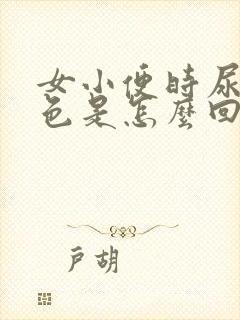 女小便時尿
色是怎麼回
戶胡